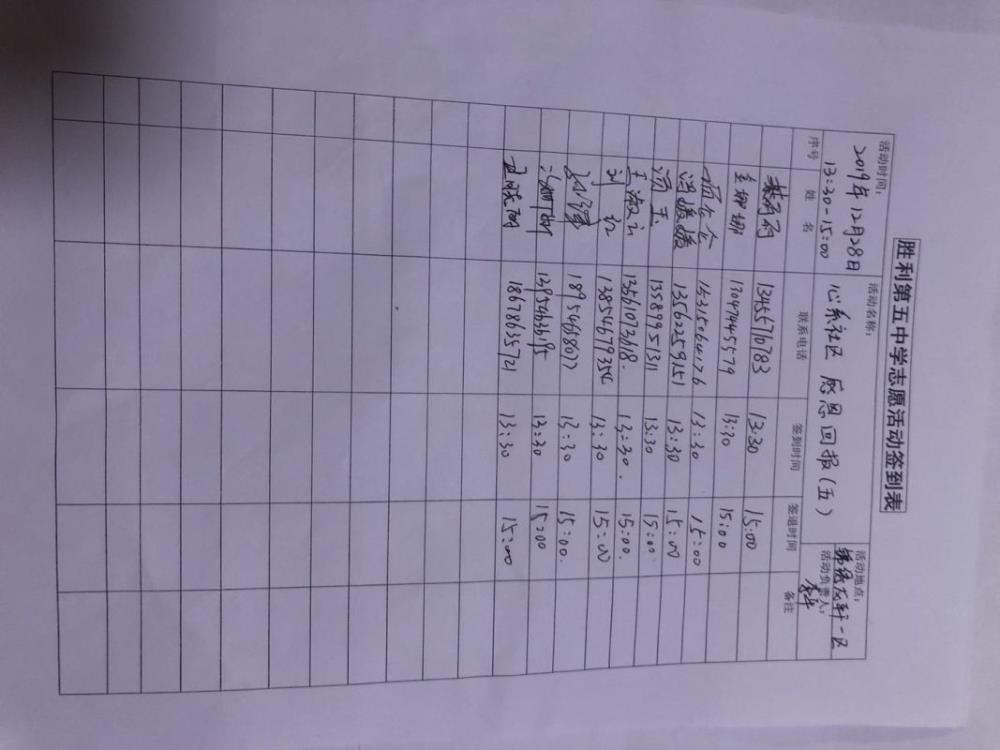 胜利第五中学志愿活动签到表
活动时间： 2019年12月28日 13:30-15:00
活动名称： 心系社区 感恩回报(五)
活动地点： 一区
活动负责人：
序号 姓名 联系电话 签到时间 签退时间 备注
13455716783 13:30 15:00
娜娜 13047445579 13:30 15:00
15315064176 13:30 15:00
冯媛媛 13562259151 13:30 15:00
汤玉 13589951311 13:30 15:00
王淑云 13561073618. 13:30. 15:00.
刘红 13854679354 13:30 15:00
18954658077 13:30 15:00.
13954636195 13:30 15:00
18678635721 13:30 15:00